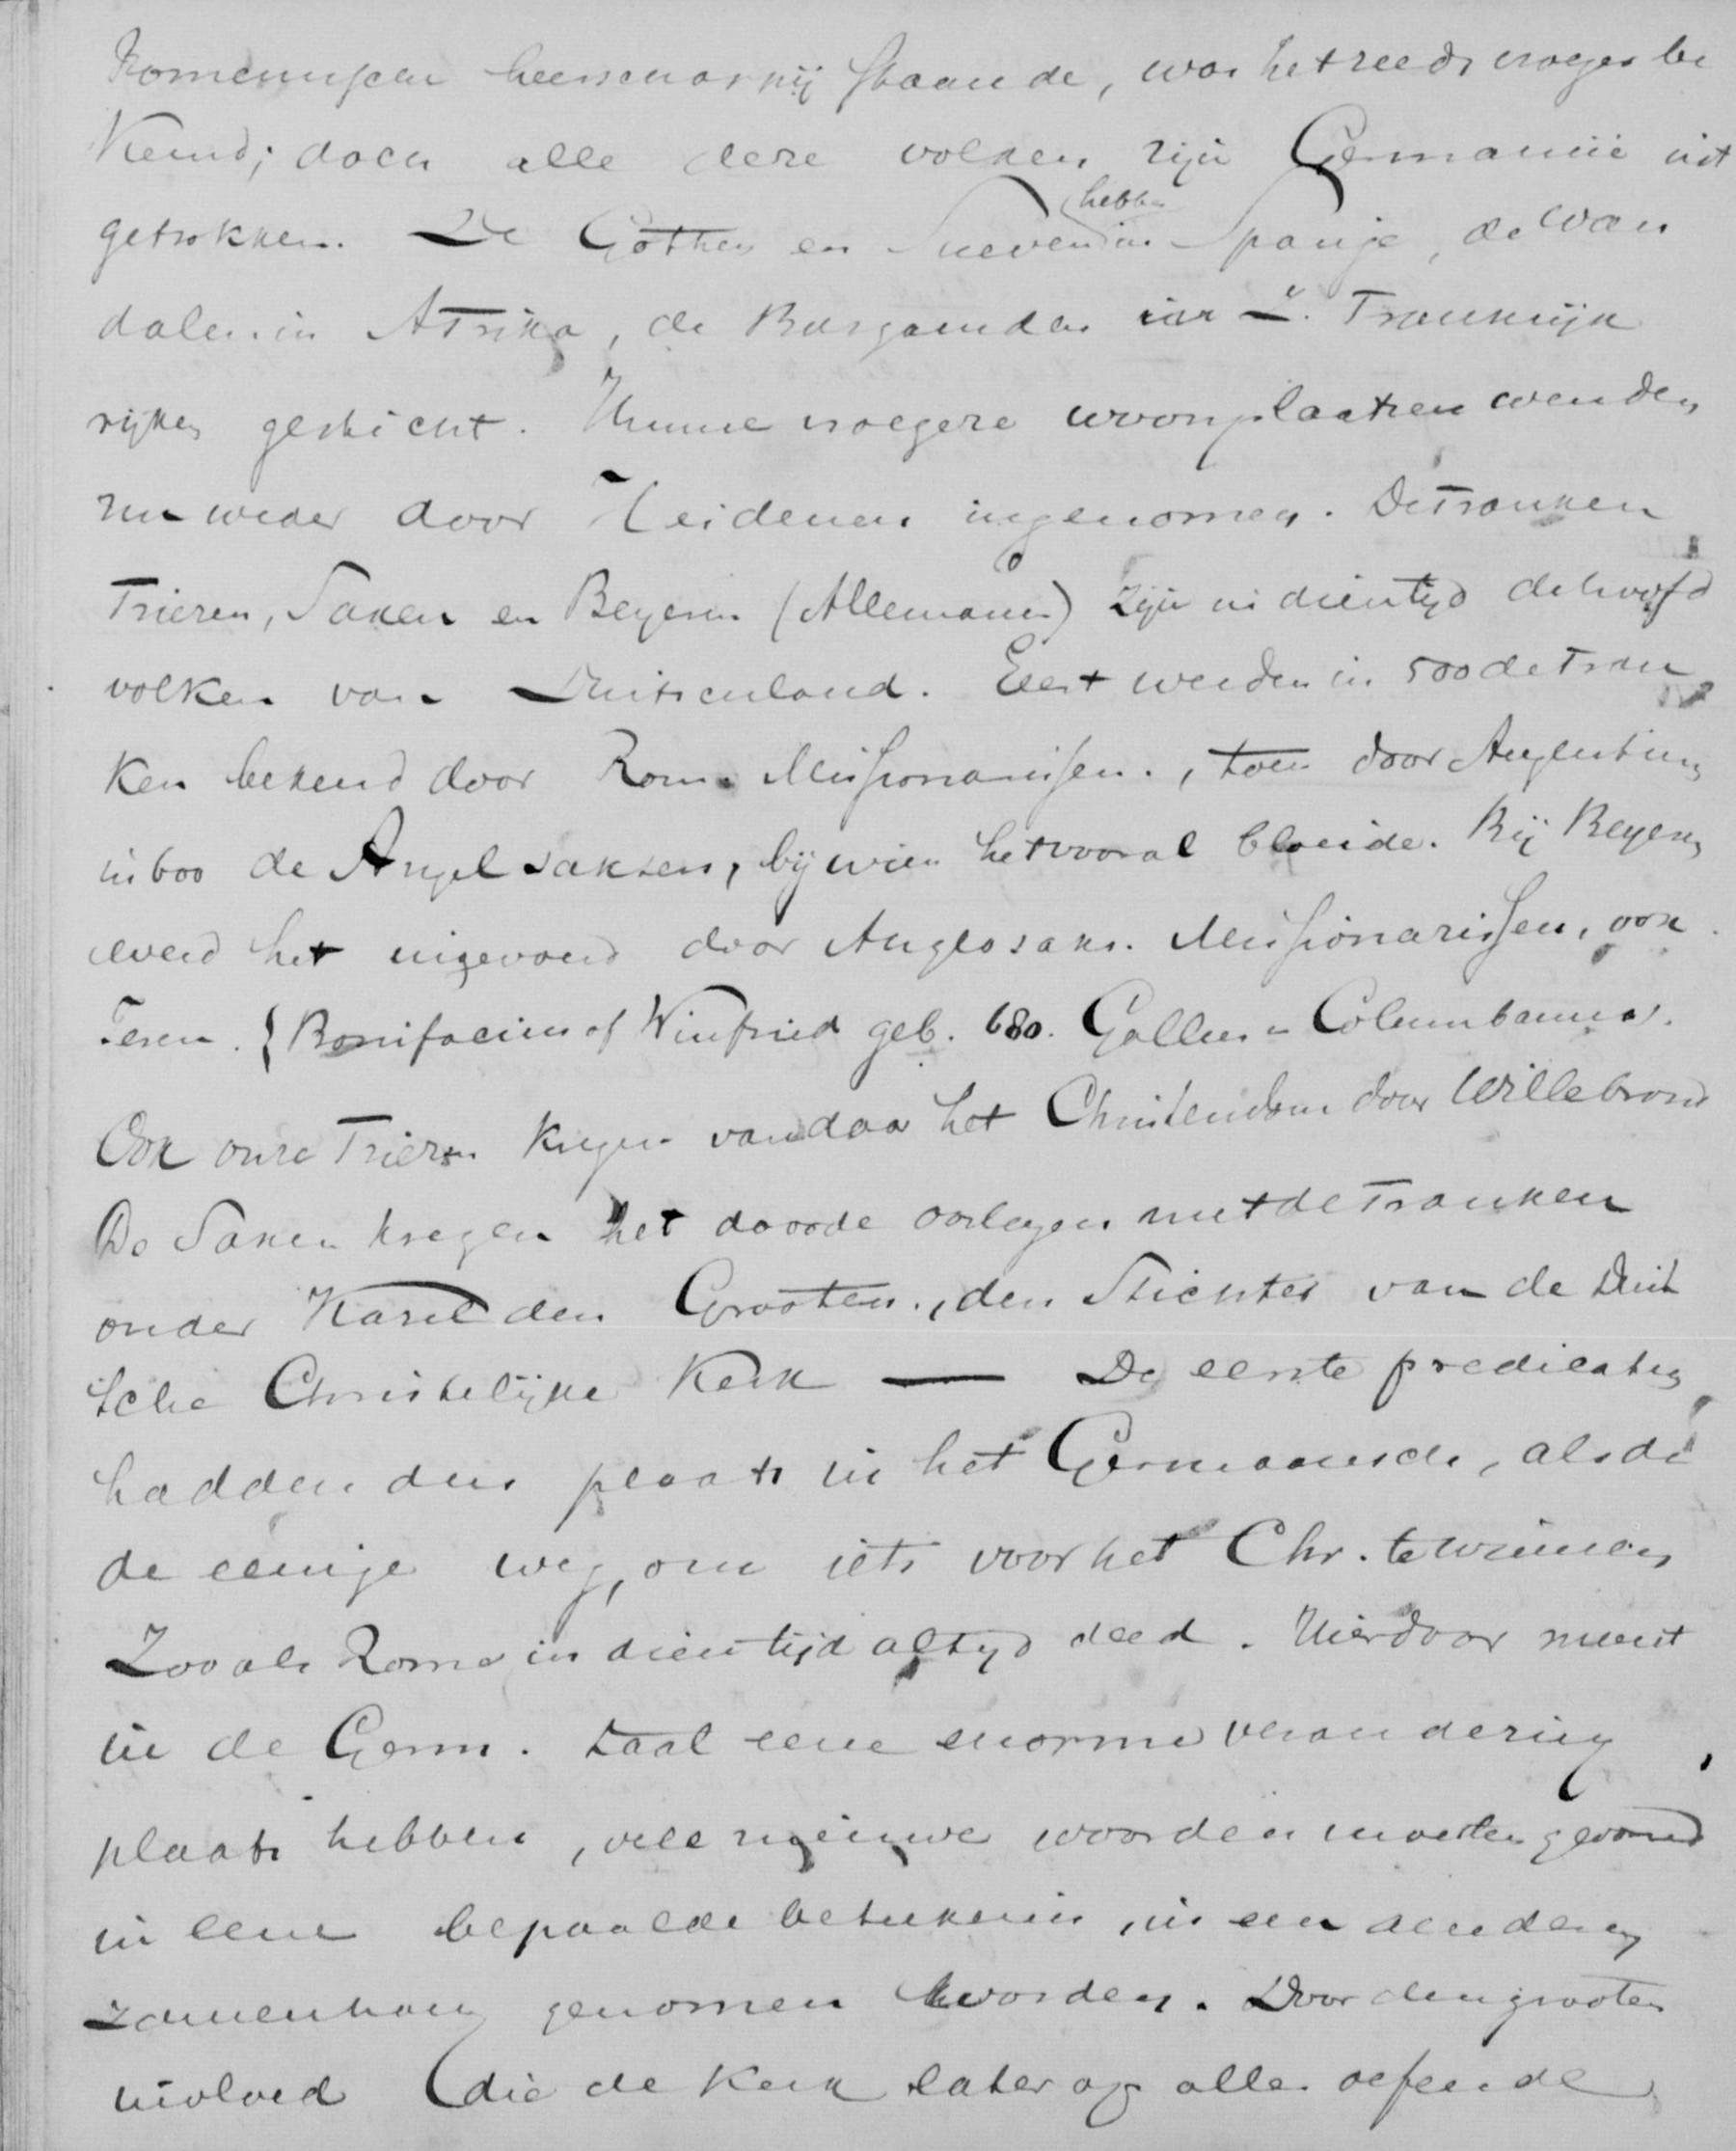 Romeinschen heerschappij staande, was het reeds vroeger be
kend; doch alle deze volken zijn Germanië uit
getrokken. De Gothen en Sueven hebben in Spanje, de Van
dalen in Afrika, de Burgonden in Z. Frankrijk
rijken gesticht. Hunne vroegere woonplaatsen werden
nu weder door Heidenen ingenomen. De Franken
Friezen, Saxen en Beyeren (Allemannen) zijn in dien tijd de hoofd
volken van Duitschland. Eerst werden in 500 de Fran
ken bekend door Rom. Missionarissen, toen door Augustinus
in 600 de Angelsaksen, bij wien het vooral bloeide. Bij Beyeren
werd het ingevoerd door Anglosaks. Missionarissen, ook
Ieren. { Bonifacius of Winfried geb. 680. Gallus en Columbanus.
Ook onze Friezen kregen vandaar het Christendom door Willebrord
De Saxen kregen het door de oorlogen met de Franken
onder Karel den Grooten, den Stichter van de Duit
sche Christelijke Kerk — De eerste predicaties
hadden dus plaats in het Germaansch, als de
de eenige weg, om iets voor het Chr. te winnen
Zooals Rome in dien tijd altijd deed. Hierdoor moest
in de Germ. taal eene enorme verandering
plaats hebben, vele nieuwe woorden moesten gevormd
in eene bepaalde beteekenis, in een anderen
zamenhang genomen worden. Door den grooten
invloed (die de Kerk later op alles oefende